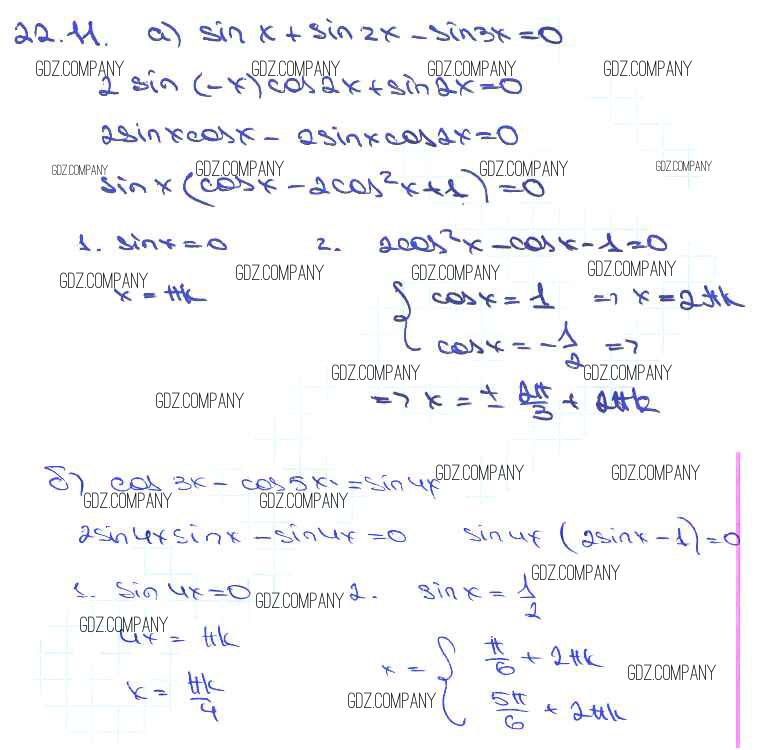 22.11. а) sin x + sin 2x - sin 3x = 0
GDZ.COMPANY GDZ.COMPANY GDZ.COMPANY GDZ.COMPANY
2 sin (-x) cos 2x + sin 2x = 0
2 sin x cos x - 2 sin x cos 2x = 0
GDZ.COMPANY GDZ.COMPANY GDZ.COMPANY GDZ.COMPANY
sin x (cos x - 2cos² x + 1) = 0
1. sin x = 0 2. 2cos² x - cos x - 1 = 0
GDZ.COMPANY GDZ.COMPANY GDZ.COMPANY GDZ.COMPANY
x = πk { cos x = 1 => x = 2πk
cos x = -1/2 =>
GDZ.COMPANY GDZ.COMPANY
GDZ.COMPANY => x = ± 2π/3 + 2πk
б) cos 3x - cos 5x = sin 4x GDZ.COMPANY GDZ.COMPANY
GDZ.COMPANY GDZ.COMPANY
2 sin 4x sin x - sin 4x = 0 sin 4x (2 sin x - 1) = 0
GDZ.COMPANY
1. sin 4x = 0 GDZ.COMPANY 2. sin x = 1/2
GDZ.COMPANY
4x = πk
x = πk/4 x = { π/6 + 2πk GDZ.COMPANY
GDZ.COMPANY 5π/6 + 2πk